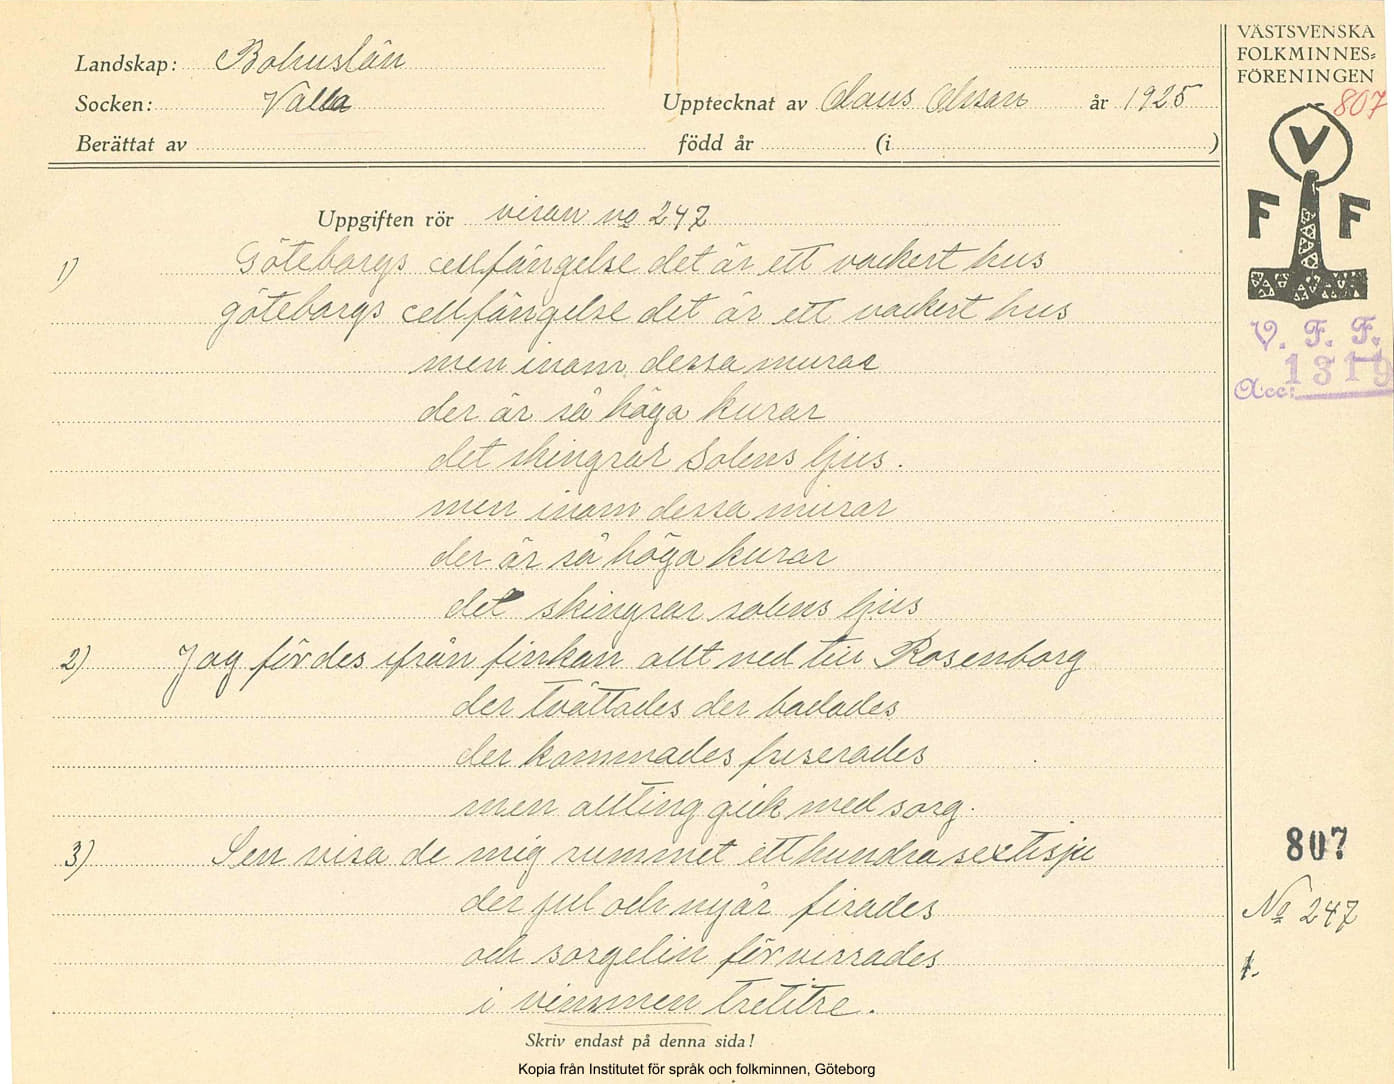 Landskap: Bohuslän
Socken: Valla
Upptecknat av Claus Olsson år 1925
Berättat av
född år (i )
VÄSTSVENSKA
FOLKMINNES=
FÖRENINGEN
807
V
F F
V. F. F.
Acc: 1319
Uppgiften rör visan no 247
1) Göteborgs cellfängelse det är ett vackert hus
göteborgs cellfängelse det är ett vackert hus
men inom dessa murar
der är så höga kurar
det skingrar Solens ljus.
men inom dessa murar
der är så höga kurar
det skingrar solens ljus
2) Jag fördes ifrån finkan allt ned till Rosenborg
der tvättades der badades
der kammades friserades
men allting gick med sorg.
3) Sen visa de mig rummet etthundrasextisju
der jul och nyår firades
och sorgelin förvirrades
i tretitre.
807
No 247
1.
Skriv endast på denna sida!
Kopia från Institutet för språk och folkminnen, Göteborg